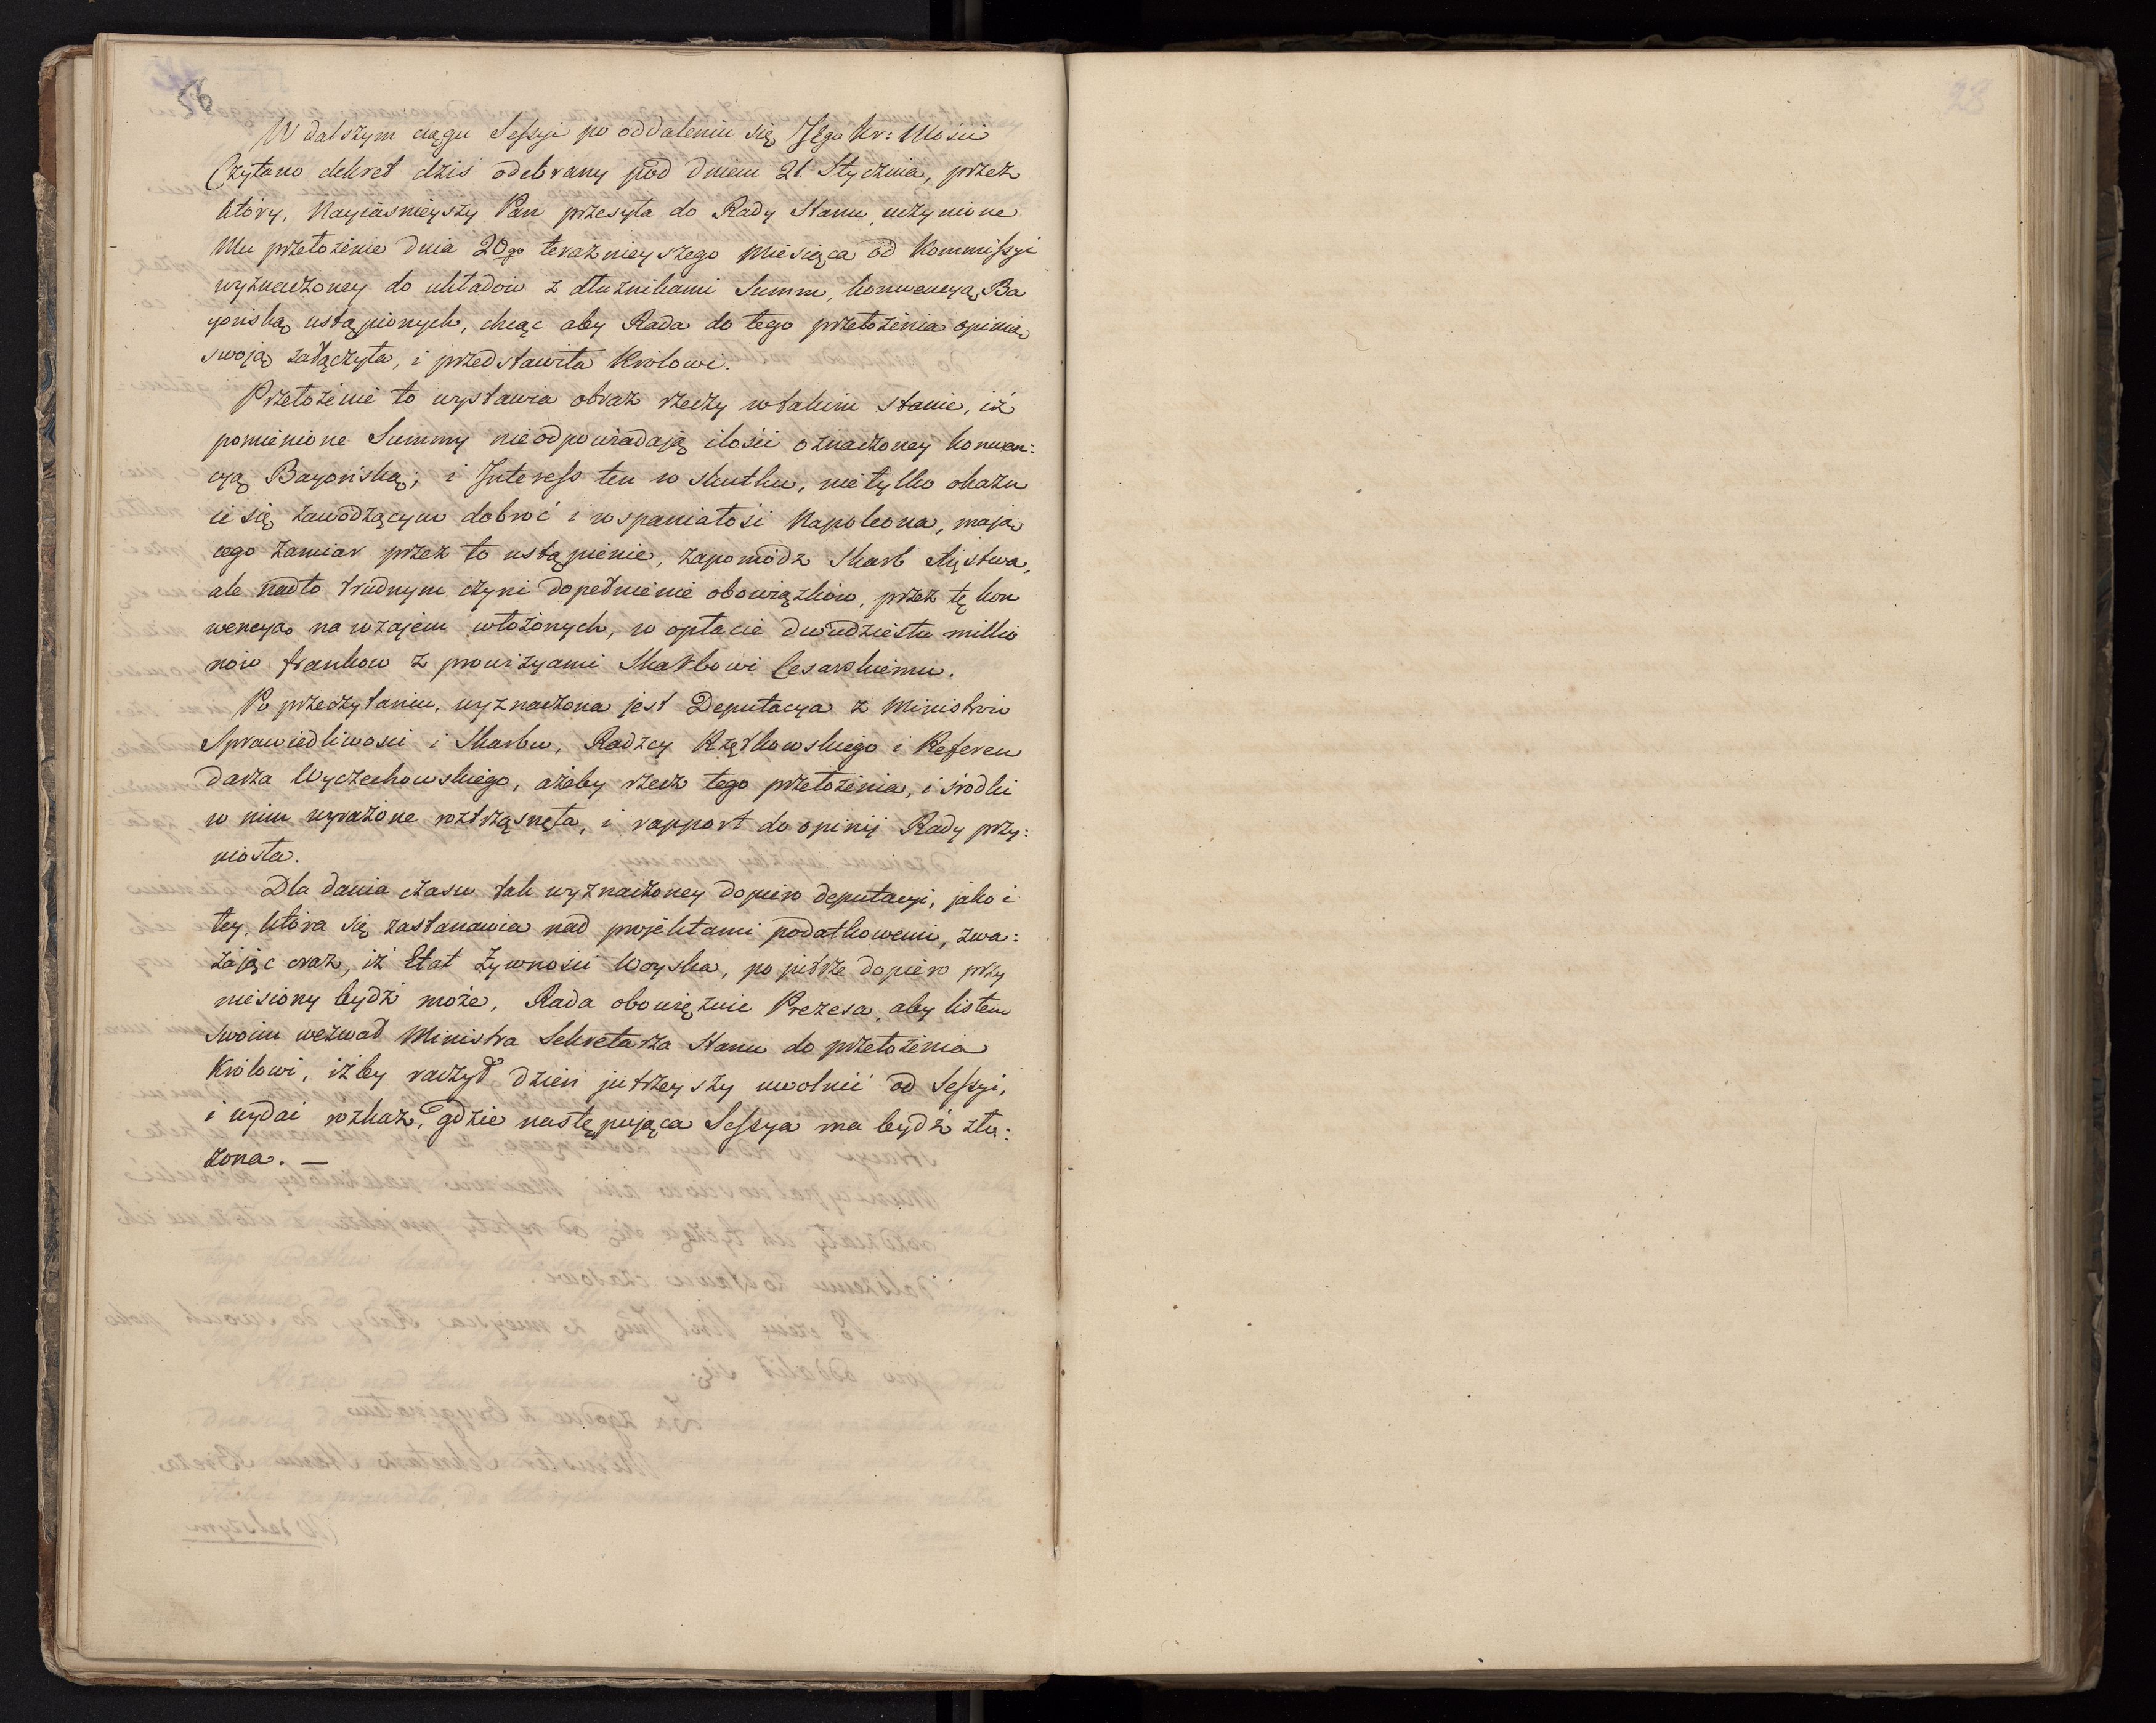 56
W dalszym ciągu Sessyi po oddaleniu się JEgo Kr: Mości
Czytano dekret dziś odebrany pod dniem 21. Stycznia, przez
który, Nayiaśnieyszy Pan przesyła do Rady Stanu, uczynione
Mu przełożenie dnia 20go teraźnieyszego Miesiąca od Kommissyi
wyznaczoney do układów z dłużnikami Summ, konwencyą Ba
yońską ustąpionych, chcąc aby Rada do tego przełożenia opinią
swoją załączyła, i przedstawiła Królowi.
Przełożenie to wystawia obraz rzeczy w takim stanie, iż
pomienione Summy nieodpowiadają ilości oznaczoney konwen:
cyą Bayońską; i Interess ten w skutku, nietylko okazu
ie się zawodzącym dobroć i wspaniałość Napoleona, mają
cego zamiar przez to ustąpienie, zapomódz Skarb Xięstwa,
ale nadto trudnym czyni dopełnienie obowiązków, przez tę kon
wencyą nawzajem włożonych, w opłacie dwudziestu millio
nów franków z prowizyami Skarbowi Cesarskiemu.
Po przeczytaniu, wyznaczona jest Deputacya z Ministrów
Sprawiedliwości i Skarbu, Radzcy Rzętkowskiego i Referen
darza Wyczechowskiego, ażeby rzecz tego przełożenia, i środki
w nim wyrażone roztrząsnęła, i rapport do opinij Rady przy:
niosła.
Dla dania czasu tak wyznaczoney dopiero deputacyi, jako i
tey, która się zastanawia nad projektami podatkowemi, zwa:
żając oraz, iż Etat żywności Woyska, po jutrze dopiero przy
niesiony bydź może, Rada obowięzuie Prezesa, aby listem
Swoim wezwał Ministra Sekretarza Stanu do przełożenia
Królowi, iżby raczył dzień jutrzeyszy uwolnić od Sessyi,
i wydać rozkaz, gdzie następująca Sessya ma bydź zło:
żona. —
28